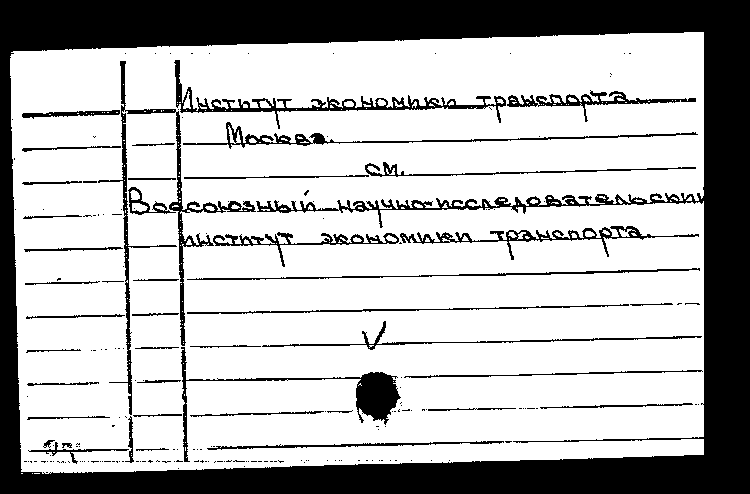 Институт экономики транспорта.
Москва.
см.
Всесоюзный научно-исследовательский
институт экономики транспорта.